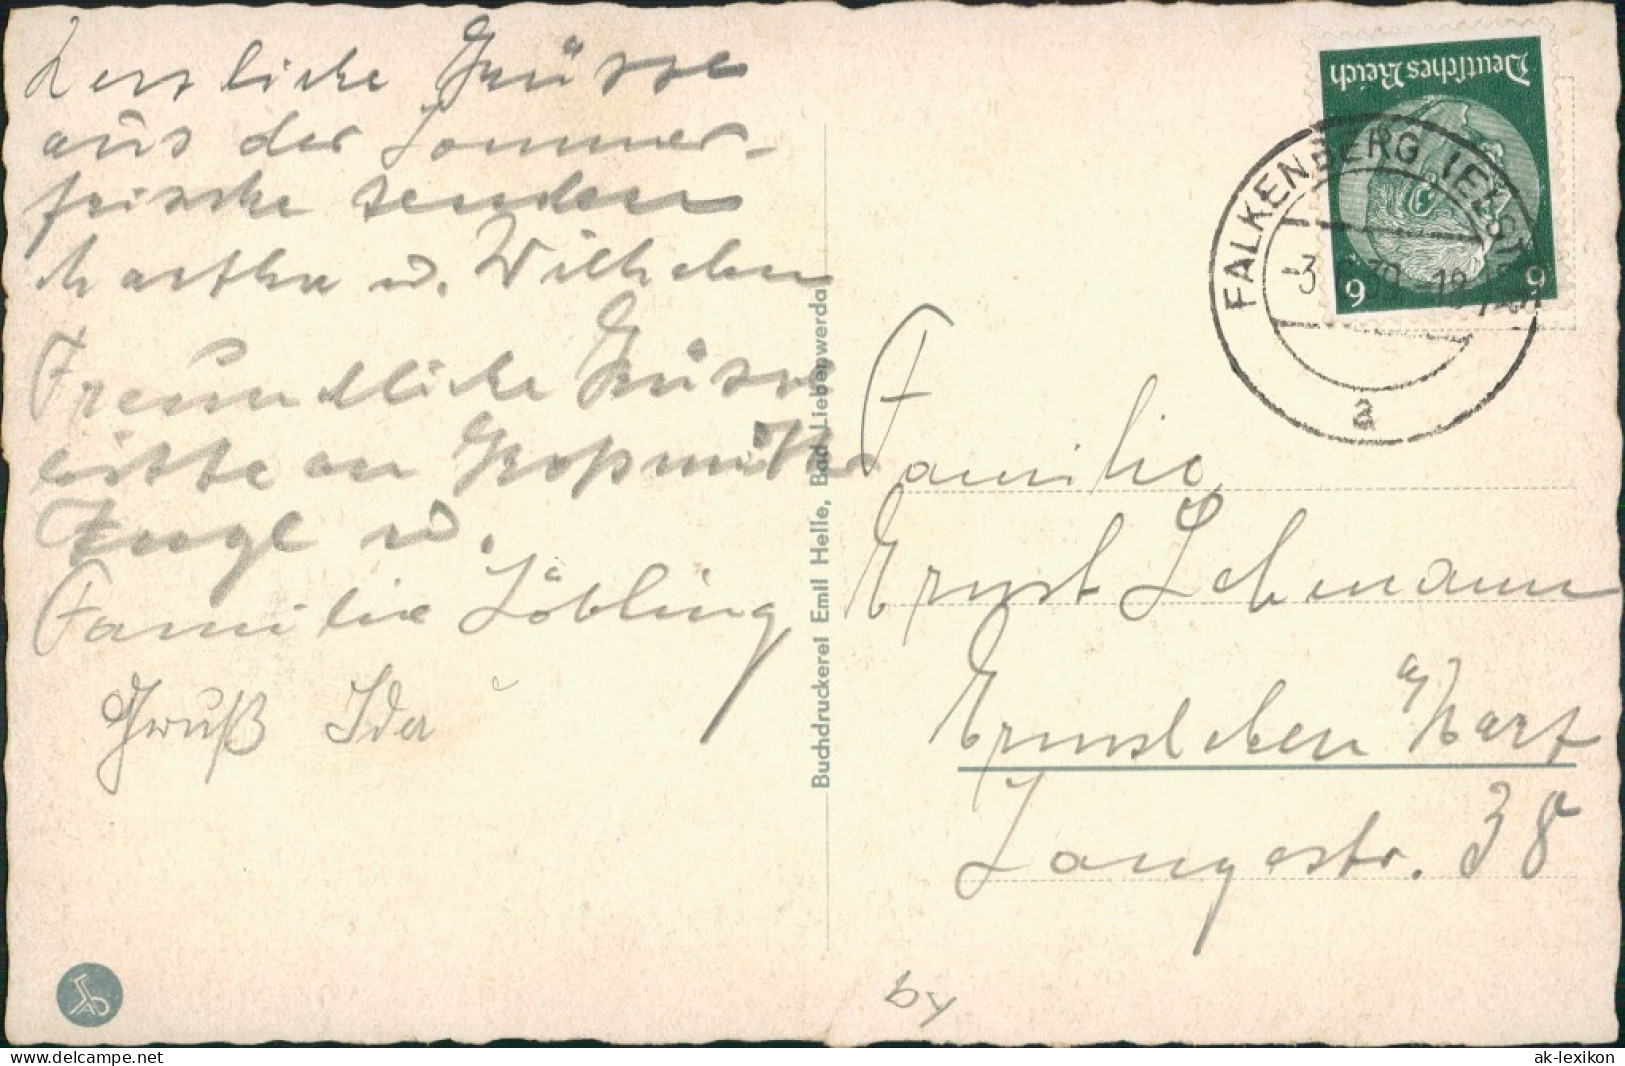 Herzliche Grüsse
aus der Sommer-
frische senden
Martha u. Wilhelm
Freundliche Grüsse
bitte an Großmutter
u.
Familie Löbling
Gruß Ida
Buchdruckerei Emil Helle, Bad Liebenwerda
Deutsches Reich
6 6
FALKENBERG (ELST
-3 39.-18
a
Familie
Ernst Lehmann
Ermsleben a/Harz
Langestr. 38
by
www.delcampe.net
ak-lexikon